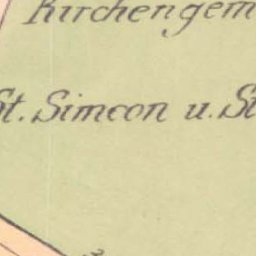 Kirchengem
St. Simeon u. St